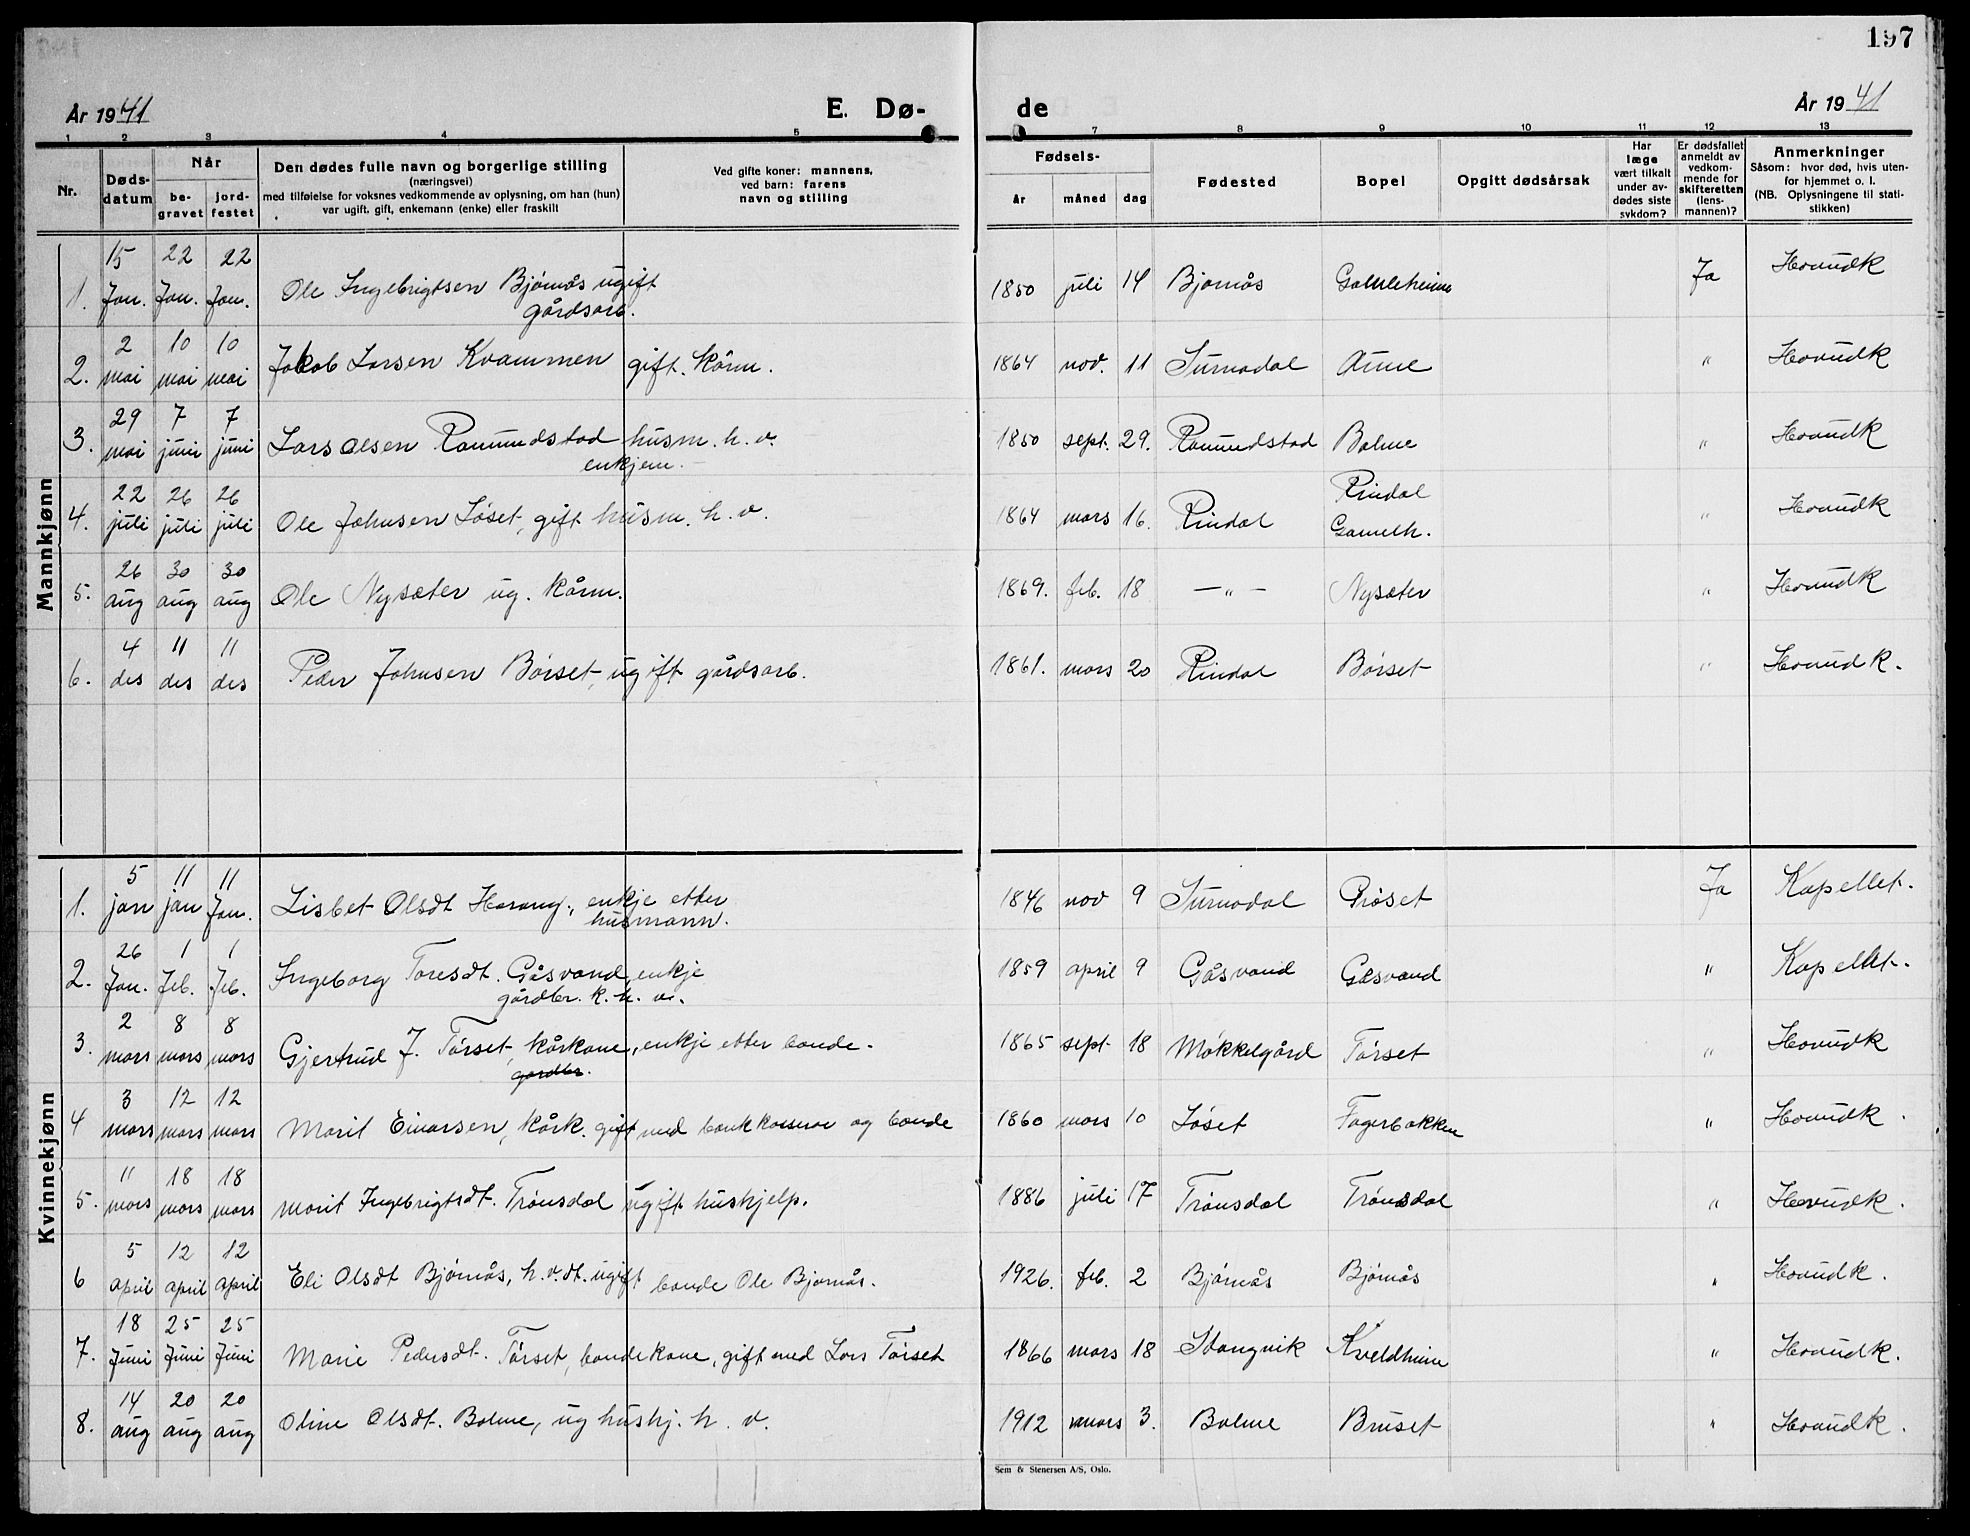 197
År 1941 E. Dø- de År 1941
1 2 3 4 5 7 8 9 10 11 12 13
Nr.
Døds-
datum
Når
be-
gravet
jord-
festet
Den dødes fulle navn og borgerlige stilling
(næringsvei)
med tilføielse for voksnes vedkommende av oplysning, om han (hun)
var ugift, gift, enkemann (enke) eller fraskilt
Ved gifte koner: mannens,
ved barn: farens
navn og stilling
Fødsels-
år måned dag
Fødested
Bopel
Opgitt dødsårsak
Har
læge
vært tilkalt
under av-
dødes siste
sykdom?
Er dødsfallet
anmeldt av
vedkom-
mende for
skifteretten
(lens-
mannen)?
Anmerkninger
Såsom: hvor død, hvis uten-
for hjemmet o. l.
(NB. Oplysningene til stati-
stikken)
Mannkjønn
1. 15 Jan. 22 Jan. 22 Jan. Ole Ingebrigtsen Bjørnås ugift 1850 juli 14 Bjørnås Gamleheim Ja Hovudk
gårdsarb.
2. 2 mai 10 mai 10 mai Jakob Larsen Kvammen gift. kårm. 1864 nov. 11 Surnadal Aune " Hovudk
3. 29 mai 7 juni 7 juni Lars Olsen Romundstad husm. h. v. 1850 sept. 29. Romundstad Bolme " Hovudk
enkjem.
4. 22 juli 26 juli 26 juli Ole Johnsen Løset, gift husm. h. v. 1864 mars 16. Rindal Rindal " Hovudk
Gamelh.
5. 26 aug 30 aug 30 aug Ole Nysæter ug. kårm. 1869. feb. 18 — " — Nysæter " Hovudk
6. 4 des 11 des 11 des Peder Johnsen Børset, ugift gårdsarb. 1861. mars 20 Rindal Børset " Hovudk.
Kvinnekjønn
1. 5 jan 11 jan 11 Jan. Lisbet Olsdt Harang, enkje etter 1846 nov 9 Surnadal Prøset Ja Kapellet.
husmann.
2. 26 Jan. 1 Feb. 1 Feb. Ingeborg Toresdt. Gåsvand, enkje 1859 april 9 Gåsvand Gåsvand " Kapellet.
gårdbr. k. h. v.
3. 2 mars 8 mars 8 mars Gjertrud J. Tørset, kårkone, enkje etter bonde. 1865 sept 18 Møkkelgård Tørset " Hovudk
gardbr.
4 3 mars 12 mars 12 mars Marit Einarsen, kårk. gift med bankkasserar og bonde 1860 mars 10 Løset Fagerbakken " Hovudk.
5. 11 mars 18 mars 18 mars Marit Ingebrigtsdt. Trønsdal ugift hushjelp. 1886 juli 17 Trønsdal Trønsdal " Hovudk.
6 5 april 12 april 12 april Eli Olsdt Bjørnås, h.v.dt. ugift bonde Ole Bjørnås. 1926. feb. 2 Bjørnås Bjørnås " Hovudk.
7. 18 Juni 25 Juni 25 Juni Marie Pedersdt. Tørset, bondekone, gift med Lars Tørset 1866 mars 18 Stangvik Kveldheim " Hovudk.
8. 14 aug 20 aug 20 aug Oline Olsdt. Bolme, ug hushj. h. v. 1912 mars 3. Bolme Bruset " Hovudk.
Sem & Stenersen A/S, Oslo.